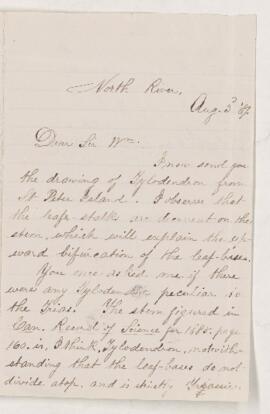 North River,
Aug. 3 '87.
Dear Sir Wm.
I now send you
the drawing of Tylodendron from
St Peter Island. I observe that
the leaf-stalks are decurrent on the
stem, which will explain the up-
ward bifurcation of the leaf-bases.
You once asked me if there
were any Tyloden peculiar to
the Trias. The stem figured in
Can. Record of Science for 1885, page
is, I think, Tylodendron, notwith-
standing that the leaf-bases do not
divide atop, and is strictly Triassic.